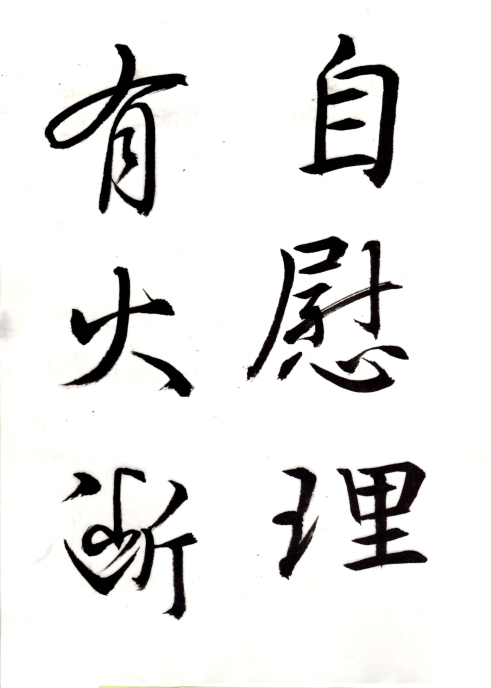 自慰理
有火断